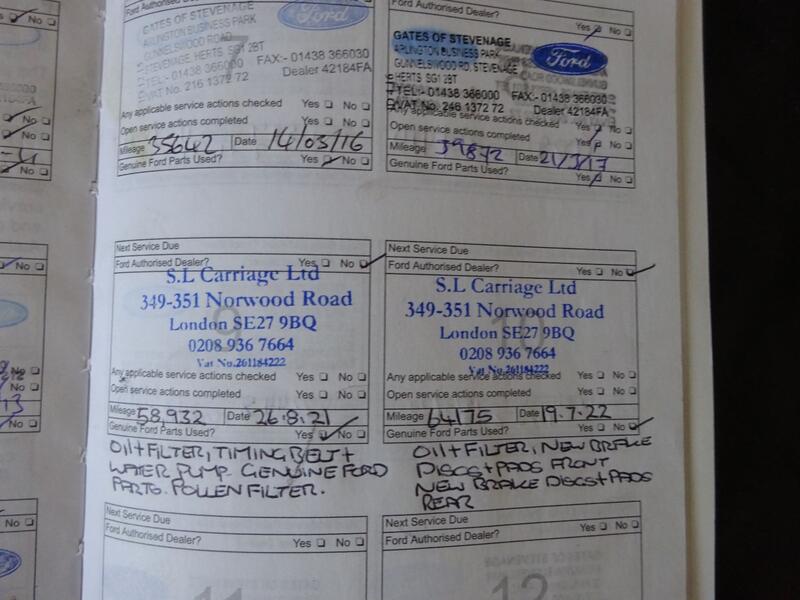 Ford Authorised Dealer?
Yes No
GATES OF STEVENAGE
ARLINGTON BUSINESS PARK
GUNNELSWOOD ROAD
STEVENAGE, HERTS SG1 2BT
TEL:- 01438 366000 FAX:- 01438 366030
VAT No. 246 1372 72 Dealer 42184FA
Ford
Any applicable service actions checked Yes No
Open service actions completed Yes No
Mileage 35642 Date 14/03/16
Genuine Ford Parts Used? Yes No
Ford Authorised Dealer?
Yes No
GATES OF STEVENAGE
ARLINGTON BUSINESS PARK
GUNNELSWOOD RD, STEVENAGE
HERTS SG1 2BT
TEL:- 01438 366000 FAX:- 01438 366030
VAT No. 246 1372 72 Dealer 42184FA
Ford
Any applicable service actions checked Yes No
Open service actions completed Yes No
Mileage 39872 Date 21/3/17
Genuine Ford Parts Used? Yes No
Next Service Due
Ford Authorised Dealer? Yes No
9
S.L Carriage Ltd
349-351 Norwood Road
London SE27 9BQ
0208 936 7664
Vat No.261184222
Any applicable service actions checked Yes No
Open service actions completed Yes No
Mileage 58,932 Date 26.8.21
Genuine Ford Parts Used? Yes No
OIL+FILTER, TIMING BELT+
WATER PUMP GENUINE FORD
PARTS. POLLEN FILTER.
Next Service Due
Ford Authorised Dealer? Yes No
10
S.L Carriage Ltd
349-351 Norwood Road
London SE27 9BQ
0208 936 7664
Vat No.261184222
Any applicable service actions checked Yes No
Open service actions completed Yes No
Mileage 64175 Date 19.7.22
Genuine Ford Parts Used? Yes No
OIL+FILTER, NEW BRAKE
DISCS+PADS FRONT
NEW BRAKE DISCS+PADS
REAR
Next Service Due
Ford Authorised Dealer? Yes No
11
Next Service Due
Ford Authorised Dealer? Yes No
12